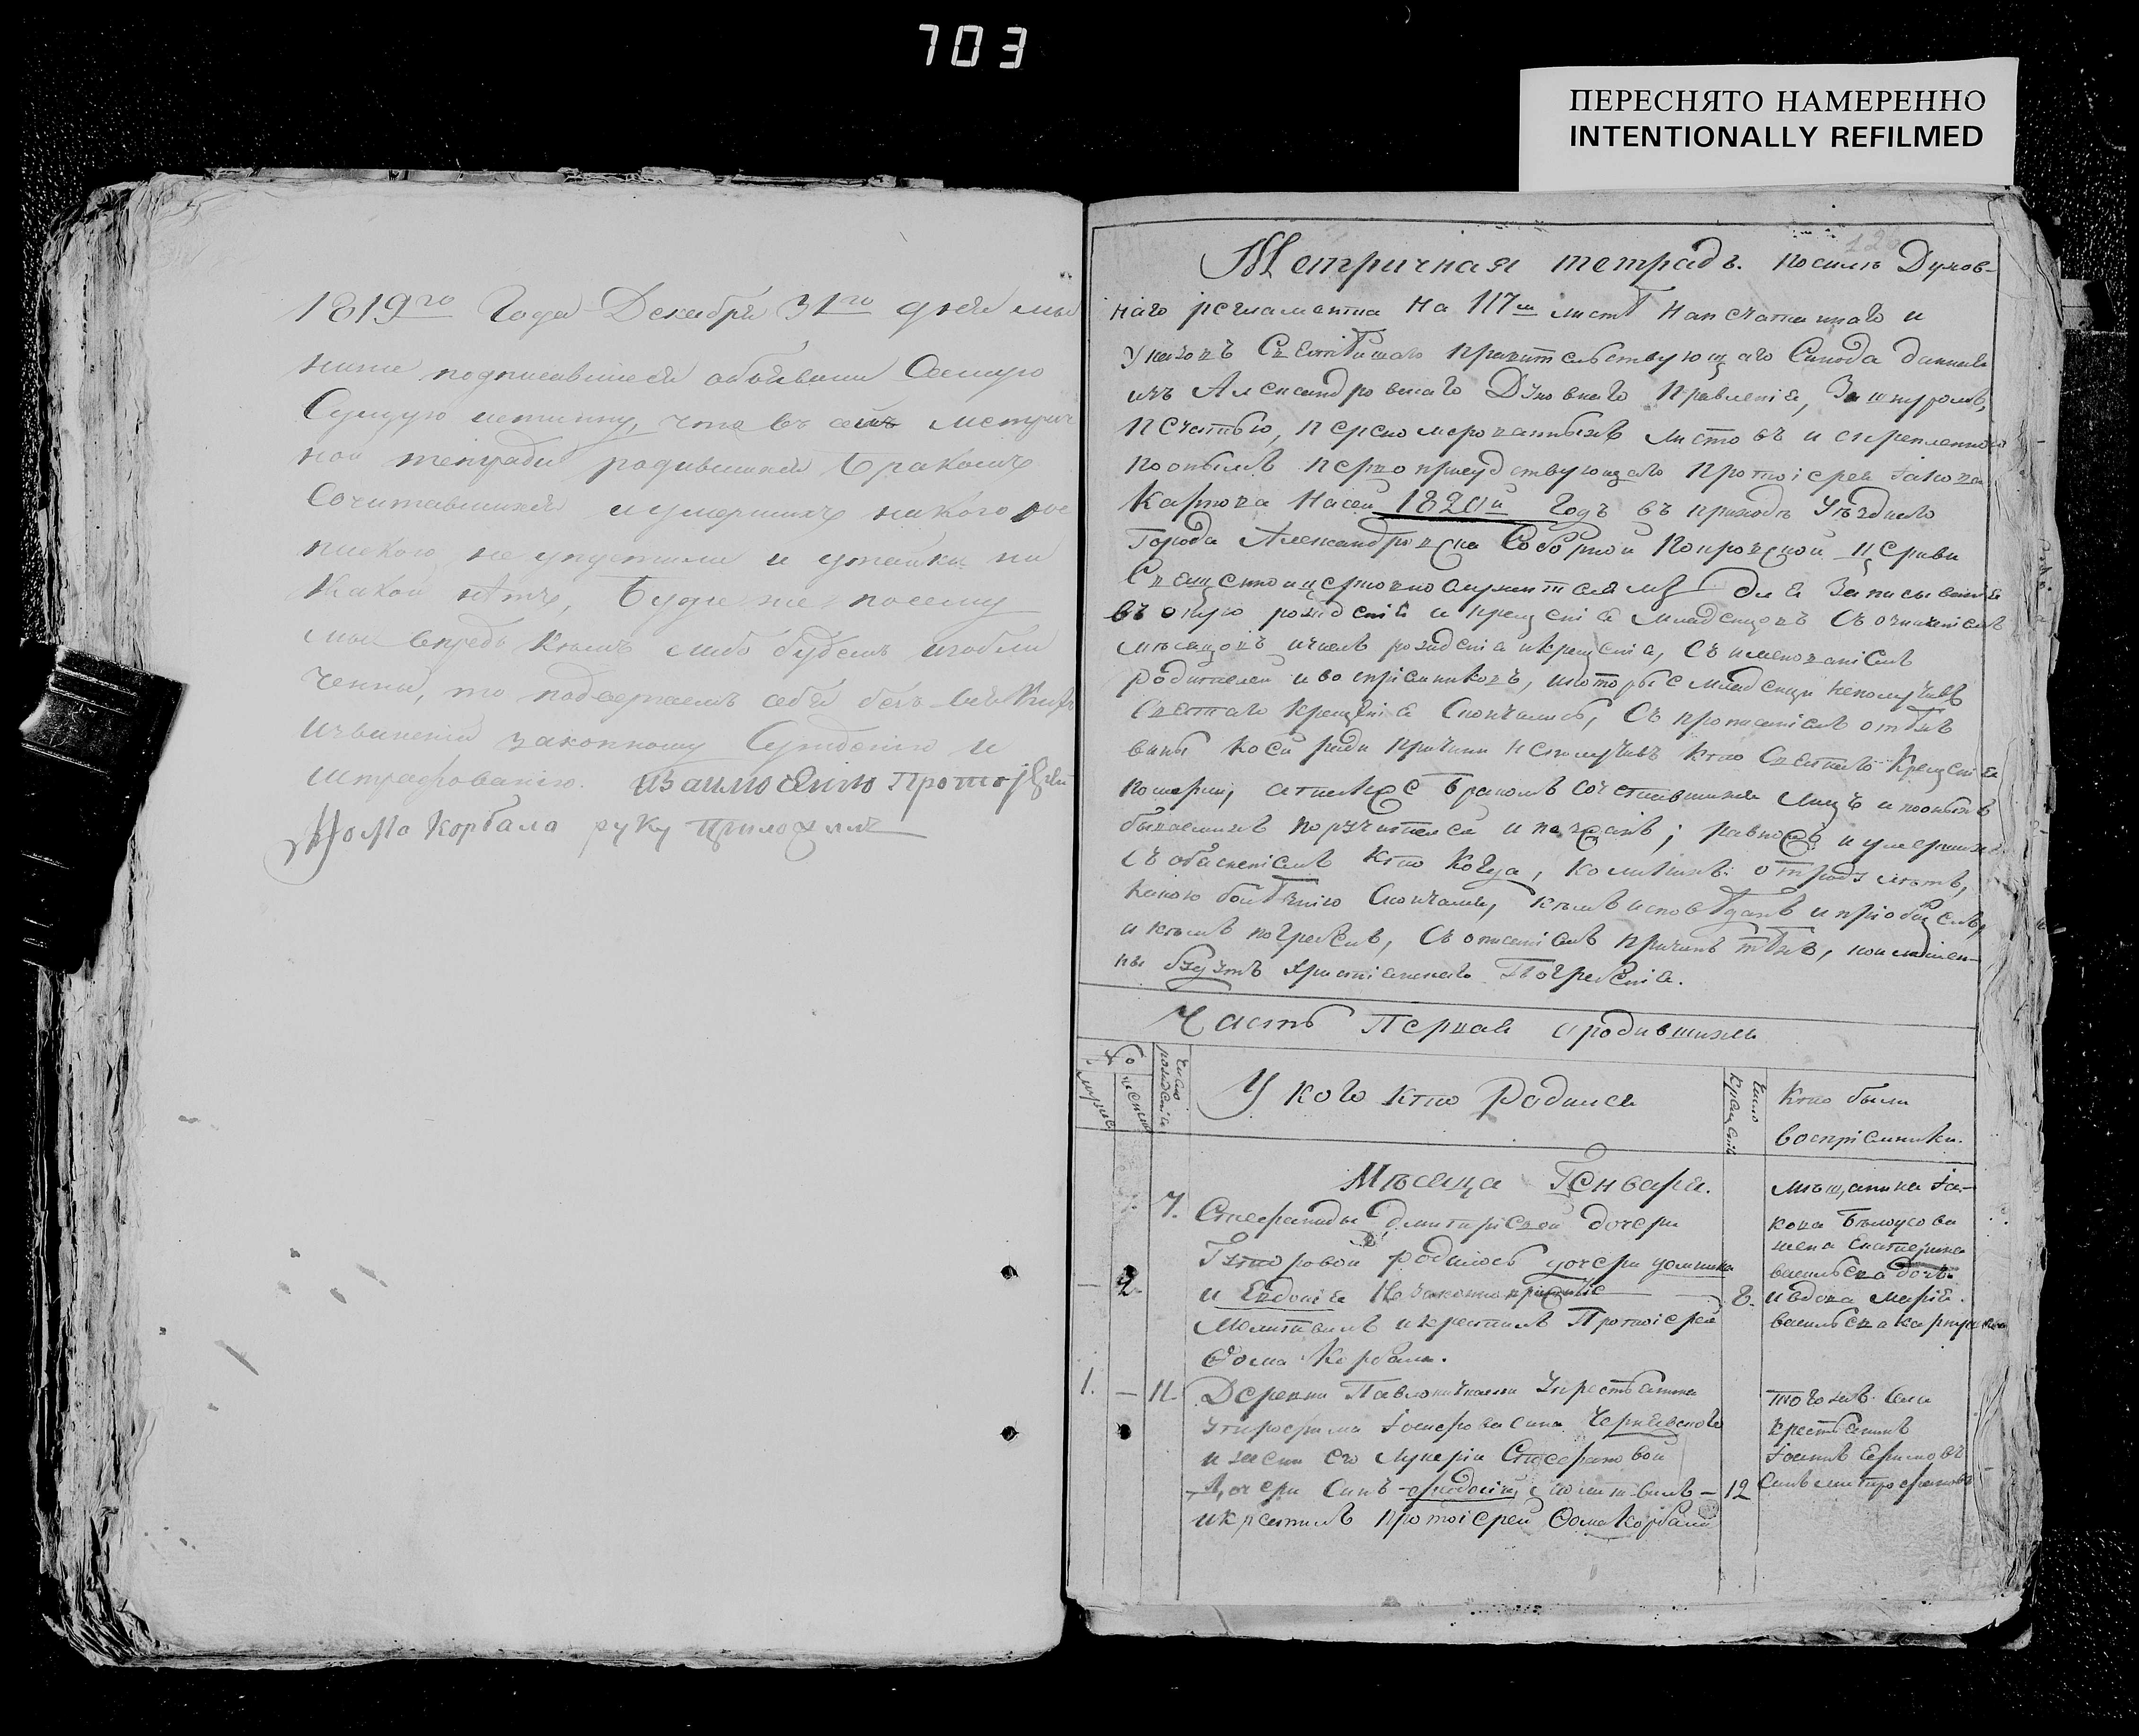 703
ПЕРЕСНЯТО НАМЕРЕННО
INTENTIONALLY REFILMED
1819го Года Декабря 31го дня мы
ниже подписавшиеся объявили Самую
Сущую истинну, что въ сей метрич
ной тетради родившихся бракомъ
Сочитавшихся и умершихъ никого
не упустили и утайки ни
какой нѣтъ, Буде же посему
мы впредь кѣмъ либо будемъ изобли
ченны, то подвергаемъ себя безъ
извинения законному Суждению и
штрафованию. Протоіерей
Фома Корбала руку приложилъ
Метричная тетрадь. По силѣ Духов-
наго регламента на 117м листѣ напечатаннаго и
Указовъ Святѣйшаго Правительствующаго Синода данная
изъ Александровскаго Духовнаго Правленія, За шнуромъ,
Печатью, перенумерованныхъ листовъ и скрепленною
по онымъ первоприсудствующаго Протоіерея Іакова
Картова На сей 1820й Годъ въ приходъ Уѣзднаго
Города Александровска Соборной Покровской Церкви
Священноицерковнослужителямъ для Записывания
въ оную рождения и крещения младенцовъ Съ означеніемъ
мѣсяцовъ и чиселъ рождения и крещения, Съ именованіемъ
родителей и воспріемниковъ, и которые младенцы не получивъ
Святаго Крещения Скончались, Съ прописаніемъ отъ чией
вины коея ради причины не получивъ кто Святаго Крещения
померли, а также Бракомъ сочетавшихся лицъ и по онымъ
бываемыхъ поручителей; равно и умершихъ
Съ объясненіемъ кто когда, коликихъ отъ роду лѣтъ,
какою болѣзнію Скончался, кѣмъ исповѣданъ и пріобщенъ,
и кѣмъ погребенъ, Съ описаніемъ причинъ тѣхъ, кои лишен-
ны будутъ христианскаго Погребения.
Часть Первая о родившихся
Число рождения
У кого кто Родился
Число крещения
Кто были
воспріемники.
Мѣсяца Генваря.
7. Стефаниды Дмитріевой дочери
родились дочери
2. и Евдокия
Молитвилъ и крестилъ Протоіерей
Фома Корбала.
8.
мѣщанина Іа-
кова Бѣлоусова
жена Екатерина
васильева дочь
и вдова Марія
васильева
1. — 11. Деревни Павлокичкаса У крестьянина
Іосифова сина Чернявского
и жены его Лукеріи Стефановой
Дочери Синъ молитвилъ — 12
и крестилъ протоіерей Фома Корбала
Крестьянинъ
Іоаннъ Ефимовъ
Синъ Митрофановъ